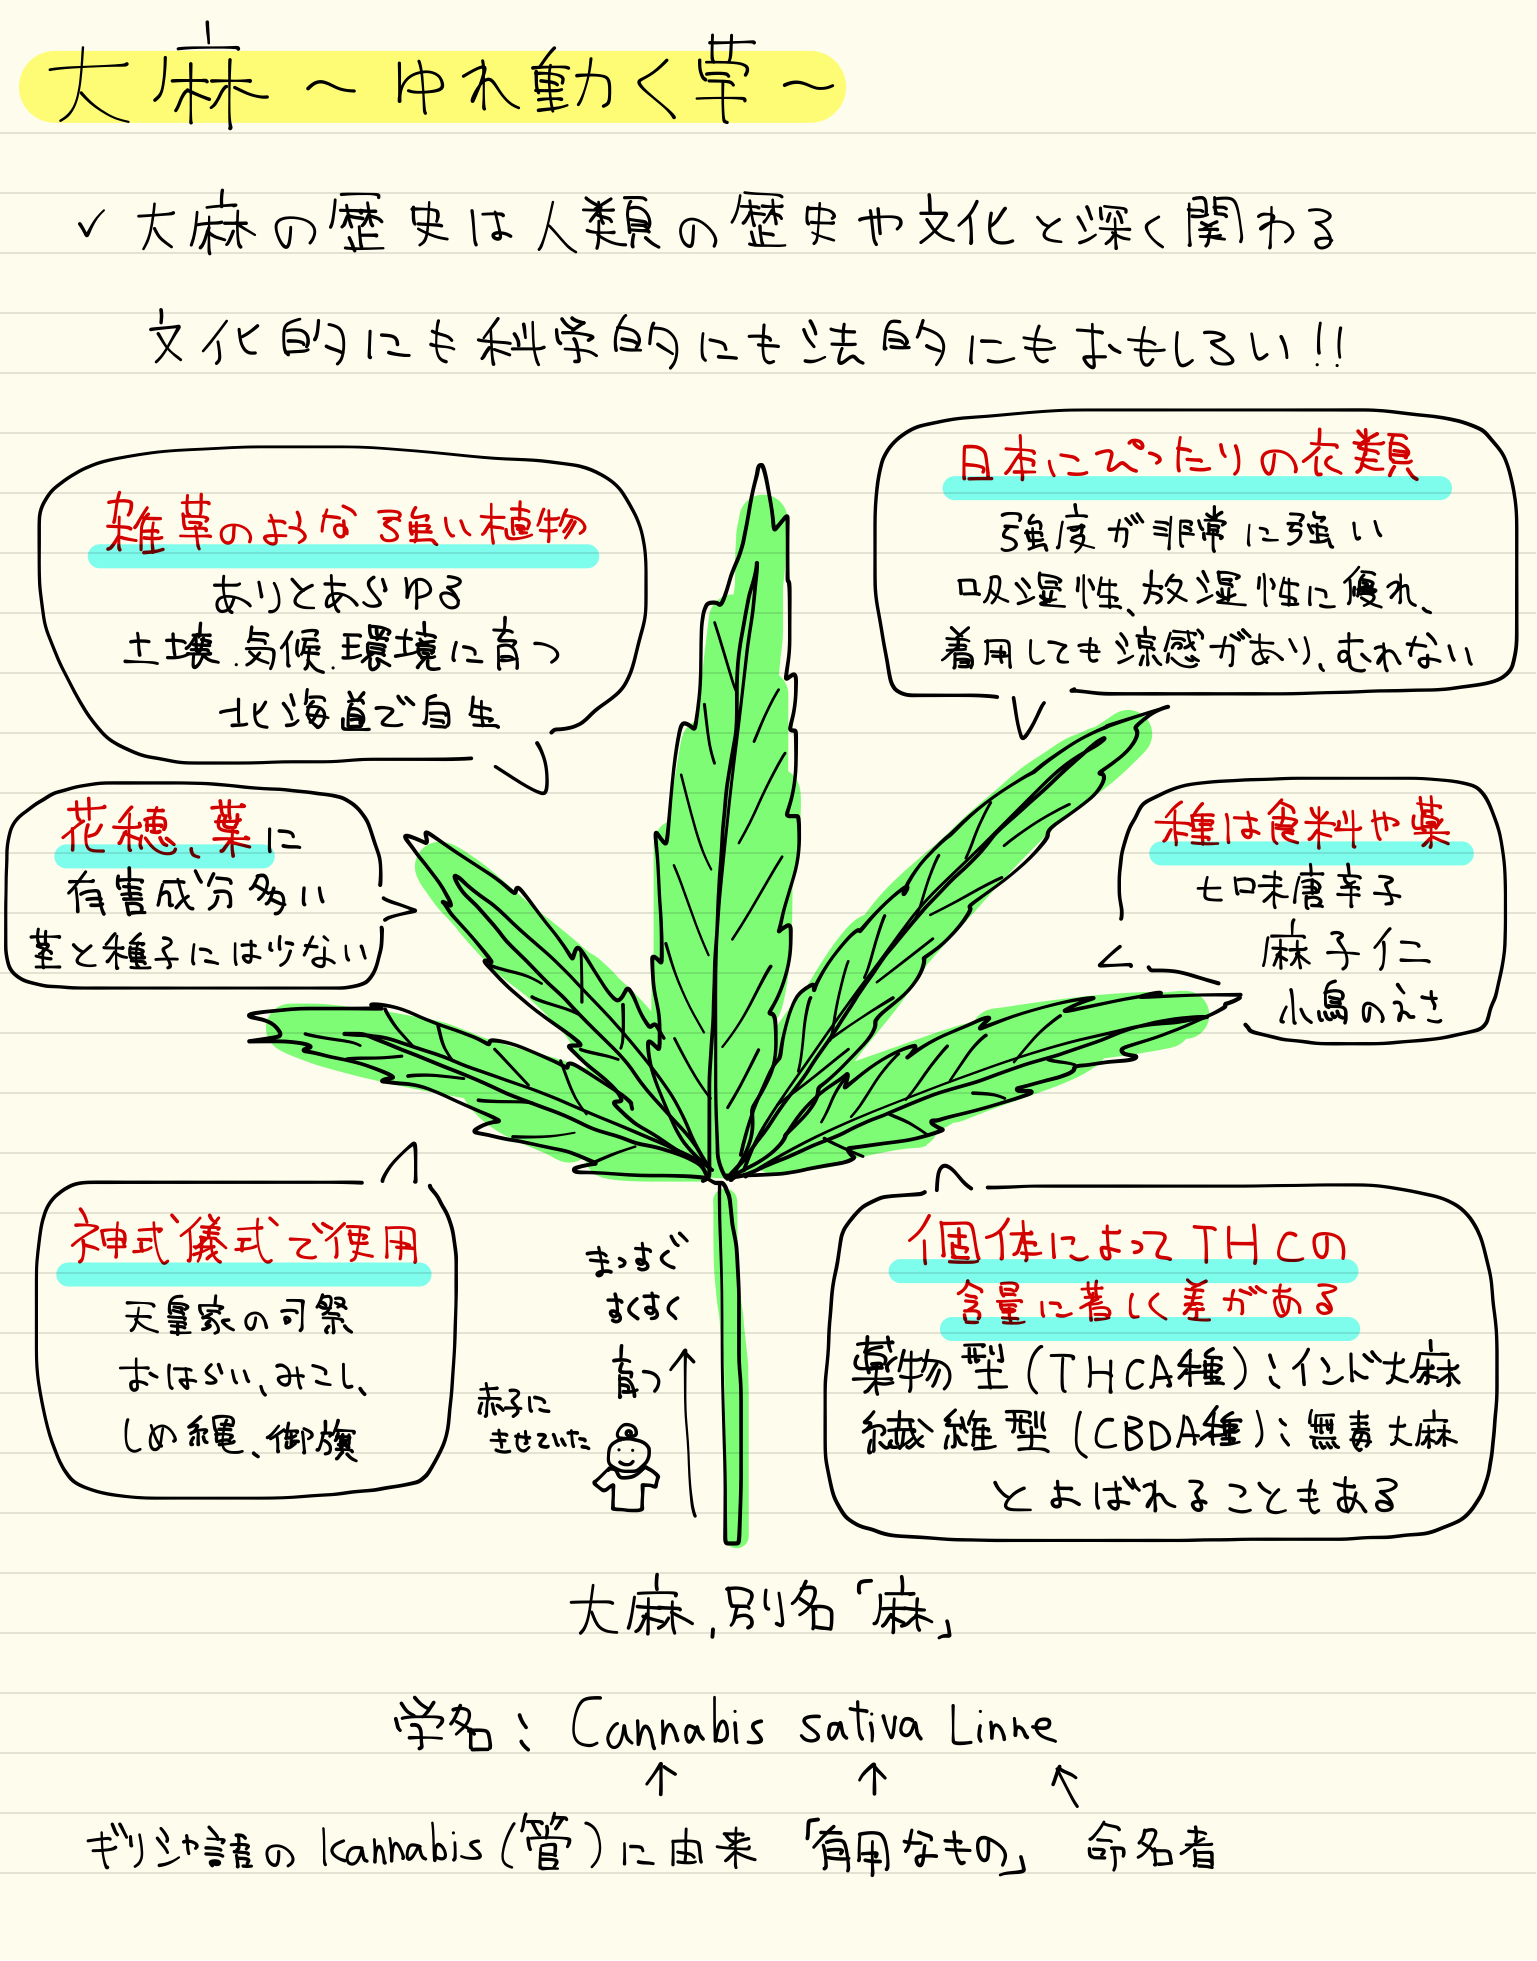 大麻 ～ゆれ動く草～
✓ 大麻の歴史は人類の歴史や文化と深く関わる
文化的にも科学的にも法的にもおもしろい!!
雑草のような強い植物
ありとあらゆる
土壌.気候.環境に育つ
北海道で自生
日本にぴったりの衣類
強度が非常に強い
吸湿性、放湿性に優れ、
着用しても涼感があり、むれない
花穂、葉に
有害成分多い
茎と種子には少ない
種は食料や薬
七味唐辛子
麻子仁
小鳥のえさ
神式儀式で使用
天皇家の司祭
おはらい、みこし、
しめ縄、御旗
まっすぐ
すくすく
育つ
赤子に
きせていた
個体によってTHCの
含量に著しく差がある
薬物型(THCA種):インド大麻
繊維型(CBDA種):無毒大麻
とよばれることもある
大麻,別名「麻」
学名: Cannabis sativa Linne
↑ ↑ ↖
ギリシャ語のkannabis(管)に由来 「有用なもの」 命名者